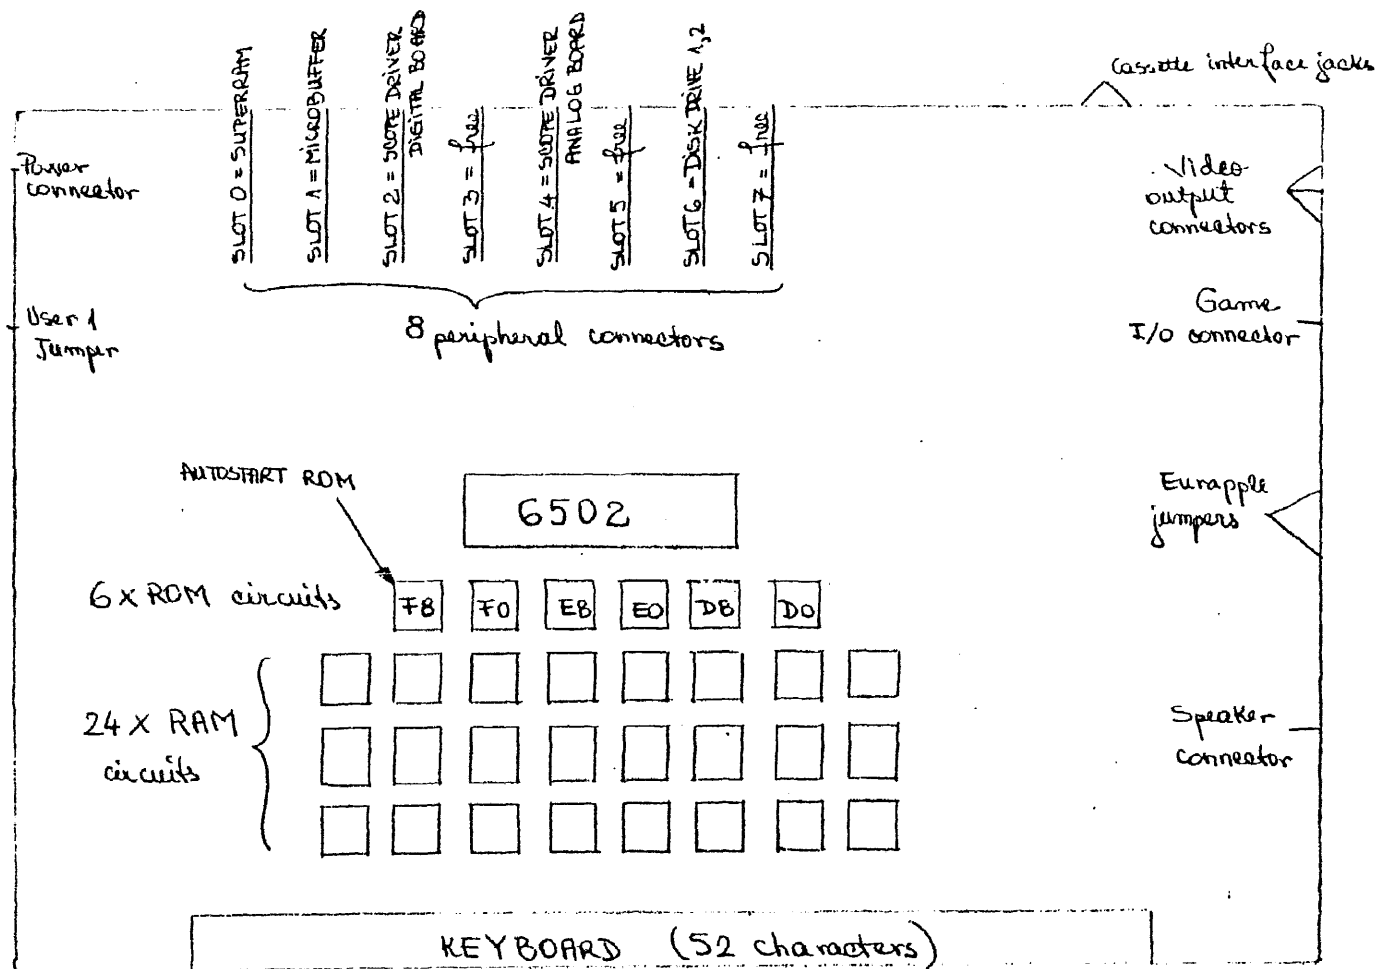 SLOT 0 = SUPERRAM
SLOT 1 = MICROBUFFER
SLOT 2 = SCOPE DRIVER
DIGITAL BOARD
SLOT 3 = free
SLOT 4 = SCOPE DRIVER
ANALOG BOARD
SLOT 5 = free
SLOT 6 = DISK DRIVE 1,2
SLOT 7 = free
Cassette interface jacks
Power
connector
Video
output
connectors
User 1
Jumper
8 peripheral connectors
Game
I/O connector
AUTOSTART ROM
6502
Eurapple
jumpers
6 x ROM circuits
F8 F0 E8 E0 D8 D0
24 x RAM
circuits
Speaker
connector
KEYBOARD (52 characters)